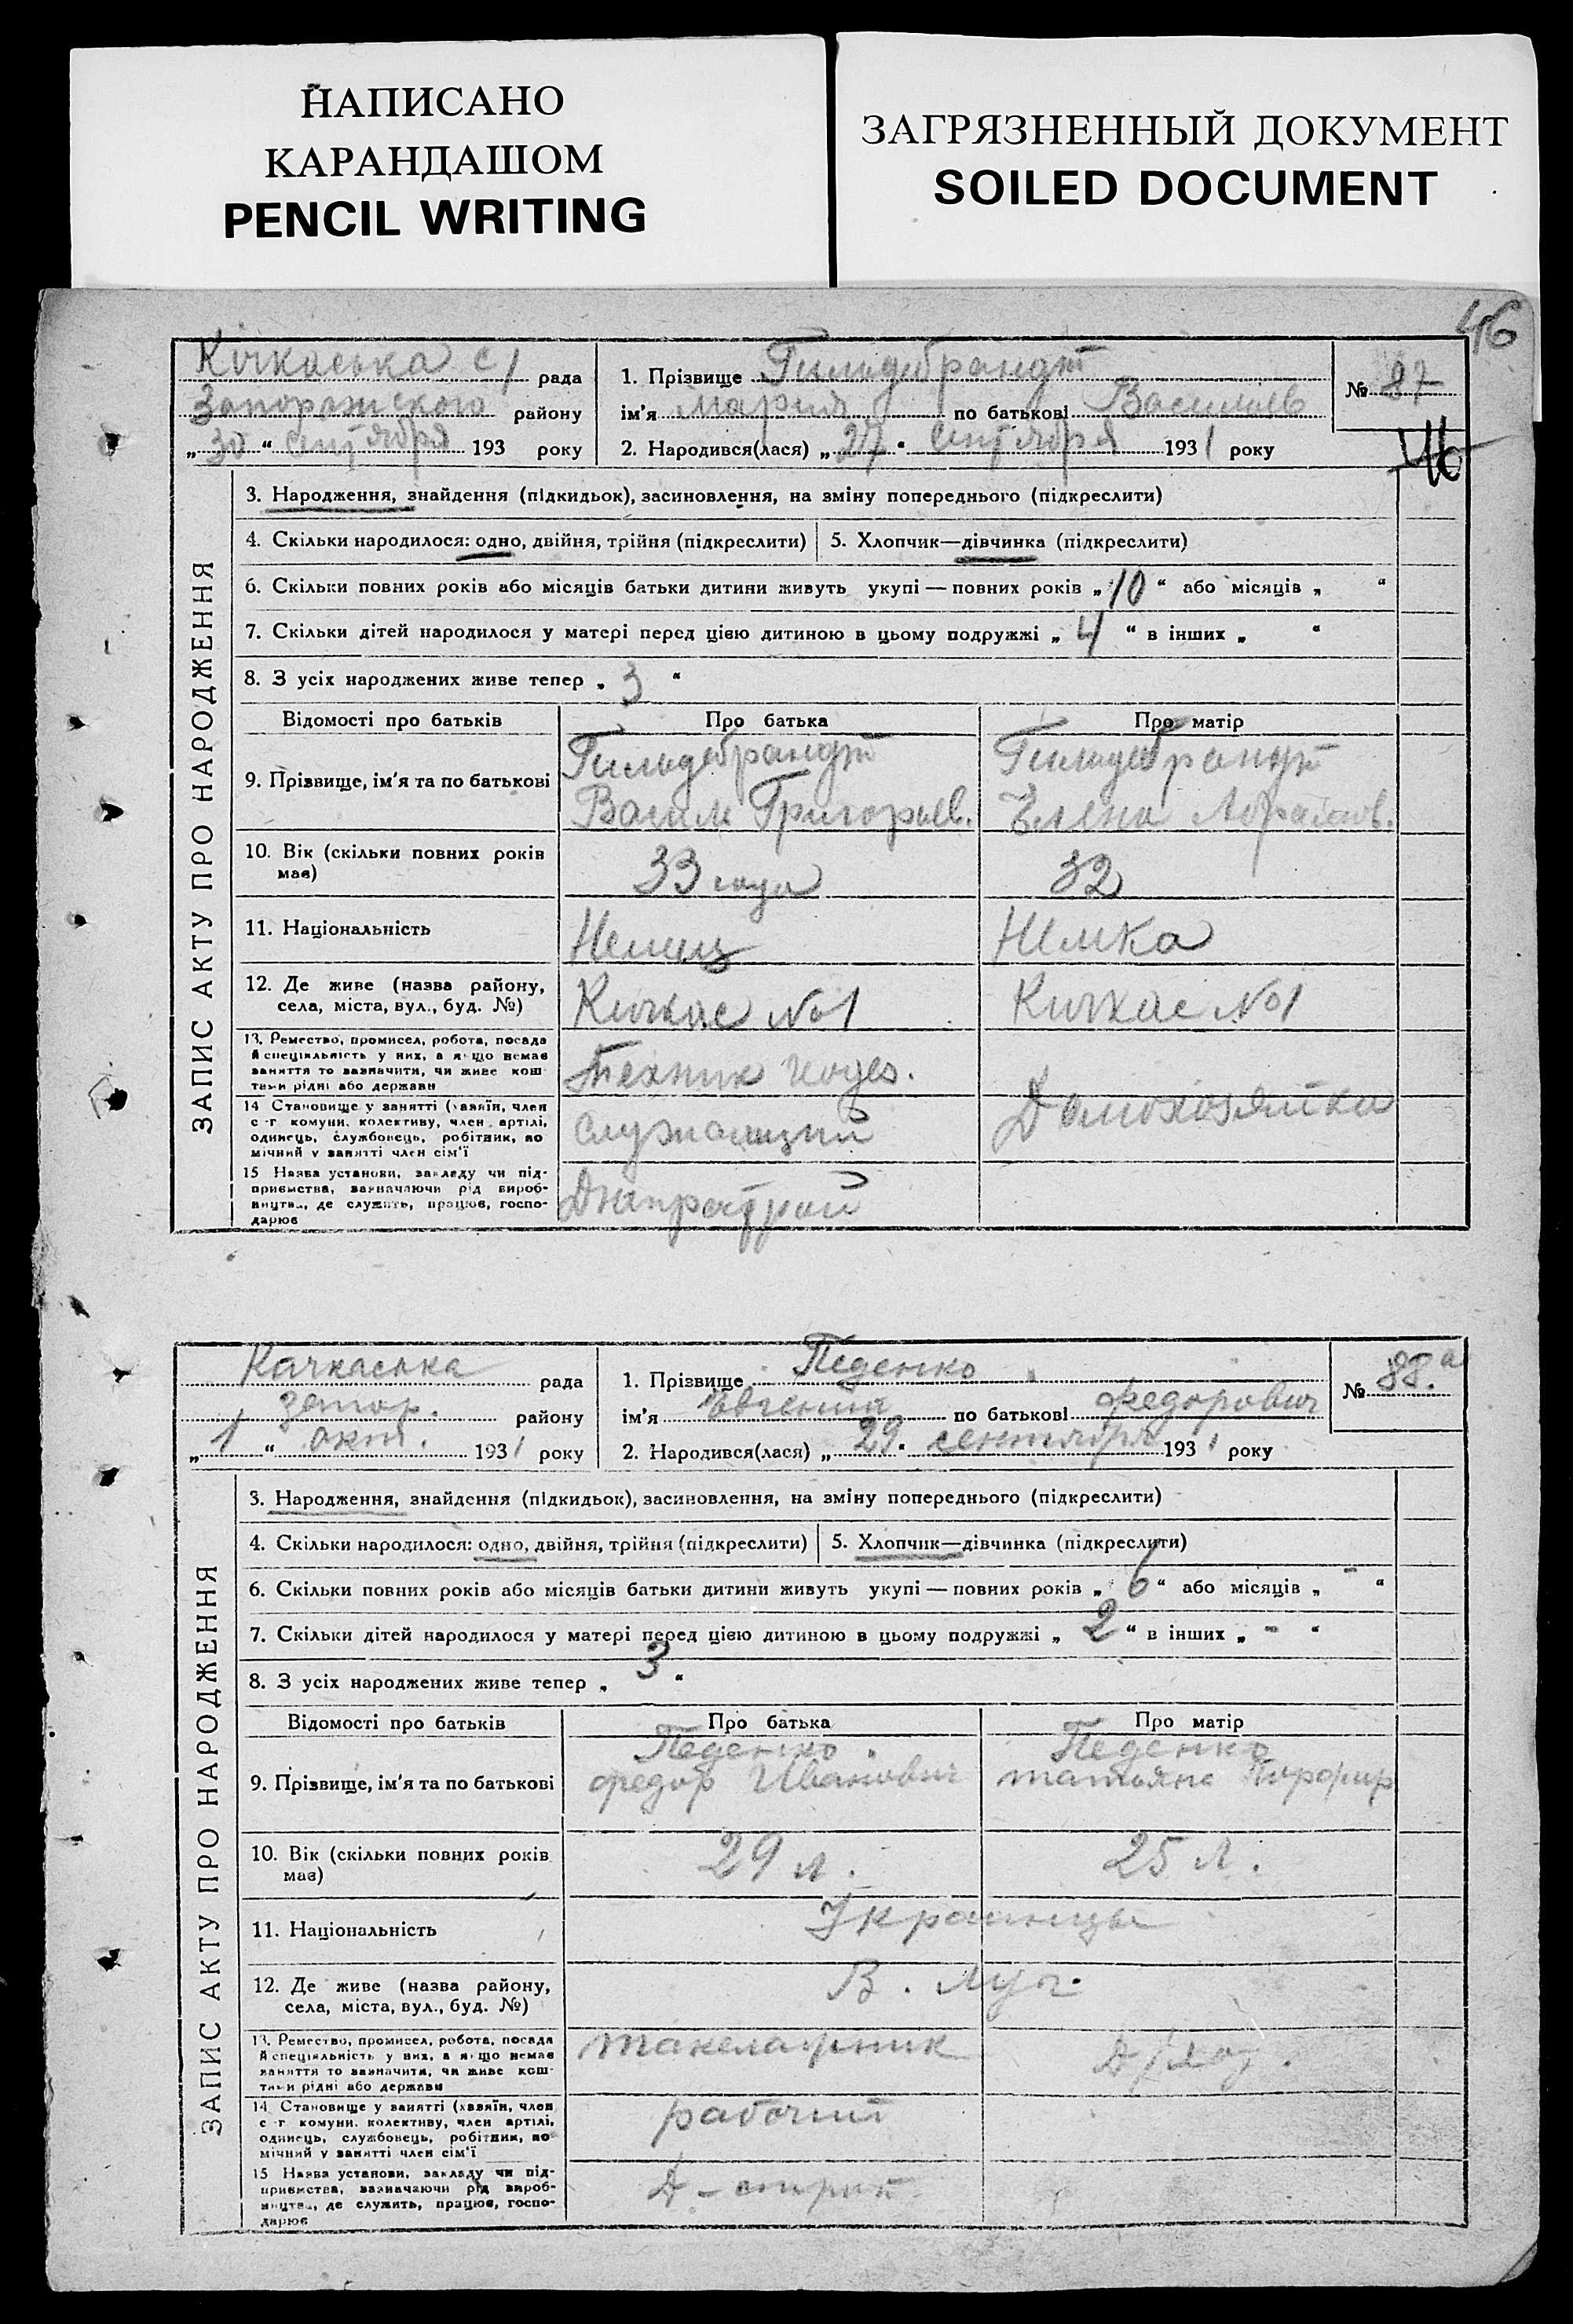 НАПИСАНО
КАРАНДАШОМ
PENCIL WRITING
ЗАГРЯЗНЕННЫЙ ДОКУМЕНТ
SOILED DOCUMENT
46
Кічкаська с/ рада
Запорожского району
„30“ сентября 193 року
1. Прізвище Гильдебрандт
ім'я Мария по батькові Васильев
2. Народився(лася) „27“ сентября 1931 року
№ 87
46
ЗАПИС АКТУ ПРО НАРОДЖЕННЯ
3. Народження, знайдення (підкидьок), засиновлення, на зміну попереднього (підкреслити)
4. Скільки народилося: одно, двійня, трійня (підкреслити) 5. Хлопчик—дівчинка (підкреслити)
6. Скільки повних років або місяців батьки дитини живуть укупі — повних років „10“ або місяців „ “
7. Скільки дітей народилося у матері перед цією дитиною в цьому подружжі „4“ в інших „ “
8. З усіх народжених живе тепер „3“
Відомості про батьків Про батька Про матір
9. Прізвище, ім'я та по батькові
Гильдебрандт
Васили Григорьев.
Гильдебрандт
Елена Абрамов.
10. Вік (скільки повних років має)
33 года
32
11. Національність
Немец
Немка
12. Де живе (назва району,
села, міста, вул., буд. №)
Кичкас №1
Кичкас №1
13. Ремество, промисел, робота, посада
й спеціяльність у них, а якщо немає
заняття то зазначити, чи живе кош-
тами рідні або держави
Техник
14 Становище у занятті (хазяїн, член
с.-г комуни, колективу, член артілі,
одинець, службовець, робітник, по-
мічний у занятті член сім'ї
Служащий
Домохозяйка
15 Назва установи, закладу чи під-
приємства, зазначаючи рід вироб-
ництва, де служить, працює, госпо-
дарює
Днепрострой
Качкаська рада
Запор. району
„1“ окт. 1931 року
1. Прізвище Педенко
ім'я Евгений по батькові Федорович
2. Народився(лася) „29“ сентября 1931 року
№ 88.а
ЗАПИС АКТУ ПРО НАРОДЖЕННЯ
3. Народження, знайдення (підкидьок), засиновлення, на зміну попереднього (підкреслити)
4. Скільки народилося: одно, двійня, трійня (підкреслити) 5. Хлопчик—дівчинка (підкреслити)
6. Скільки повних років або місяців батьки дитини живуть укупі — повних років „6“ або місяців „-“
7. Скільки дітей народилося у матері перед цією дитиною в цьому подружжі „2“ в інших „-“
8. З усіх народжених живе тепер „3“
Відомості про батьків Про батька Про матір
9. Прізвище, ім'я та по батькові
Педенко
Федор Иванович
Педенко
Татьяна Порфир
10. Вік (скільки повних років має)
29 л.
25 л.
11. Національність
Украинцы
12. Де живе (назва району,
села, міста, вул., буд. №)
В. Луг.
13. Ремество, промисел, робота, посада
й спеціяльність у них, а якщо немає
заняття то зазначити, чи живе кош-
тами рідні або держави
такелажник
14 Становище у занятті (хазяїн, член
с.-г комуни, колективу, член артілі,
одинець, службовець, робітник, по-
мічний у занятті член сім'ї
рабочий
15 Назва установи, закладу чи під-
приємства, зазначаючи рід вироб-
ництва, де служить, працює, госпо-
дарює
Д-строй